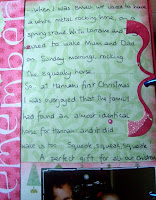 when I was small we used to have
a white metal rocking horse on a
spring stand. Both Lorraine and I
used to wake Mum and Dad
on Sunday mornings rocking
our squeaky horse.
So at Hannah's first Christmas
I was overjoyed that my family
had found an almost identical
horse for Hannah and it did
wake us too. Squeak, squeak, squeak.
A perfect gift for all our children
remember